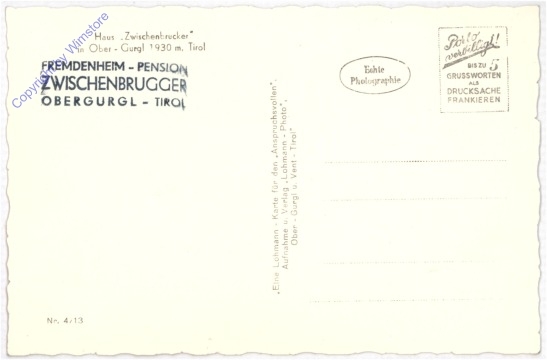 Haus „Zwischenbrucker"
in Ober - Gurgl 1930 m, Tirol
FREMDENHEIM - PENSION
ZWISCHENBRUGGER
OBERGURGL - TIROL
Copyright by Wimstore
Echte
Photographie
Porto
verbilligt!
BIS ZU 5
GRUSSWORTEN
ALS
DRUCKSACHE
FRANKIEREN
„Eine Lohmann - Karte für den „Anspruchsvollen".
Aufnahme u. Verlag „Lohmann - Photo",
Ober - Gurgl u. Vent - Tirol"
Nr. 4/13